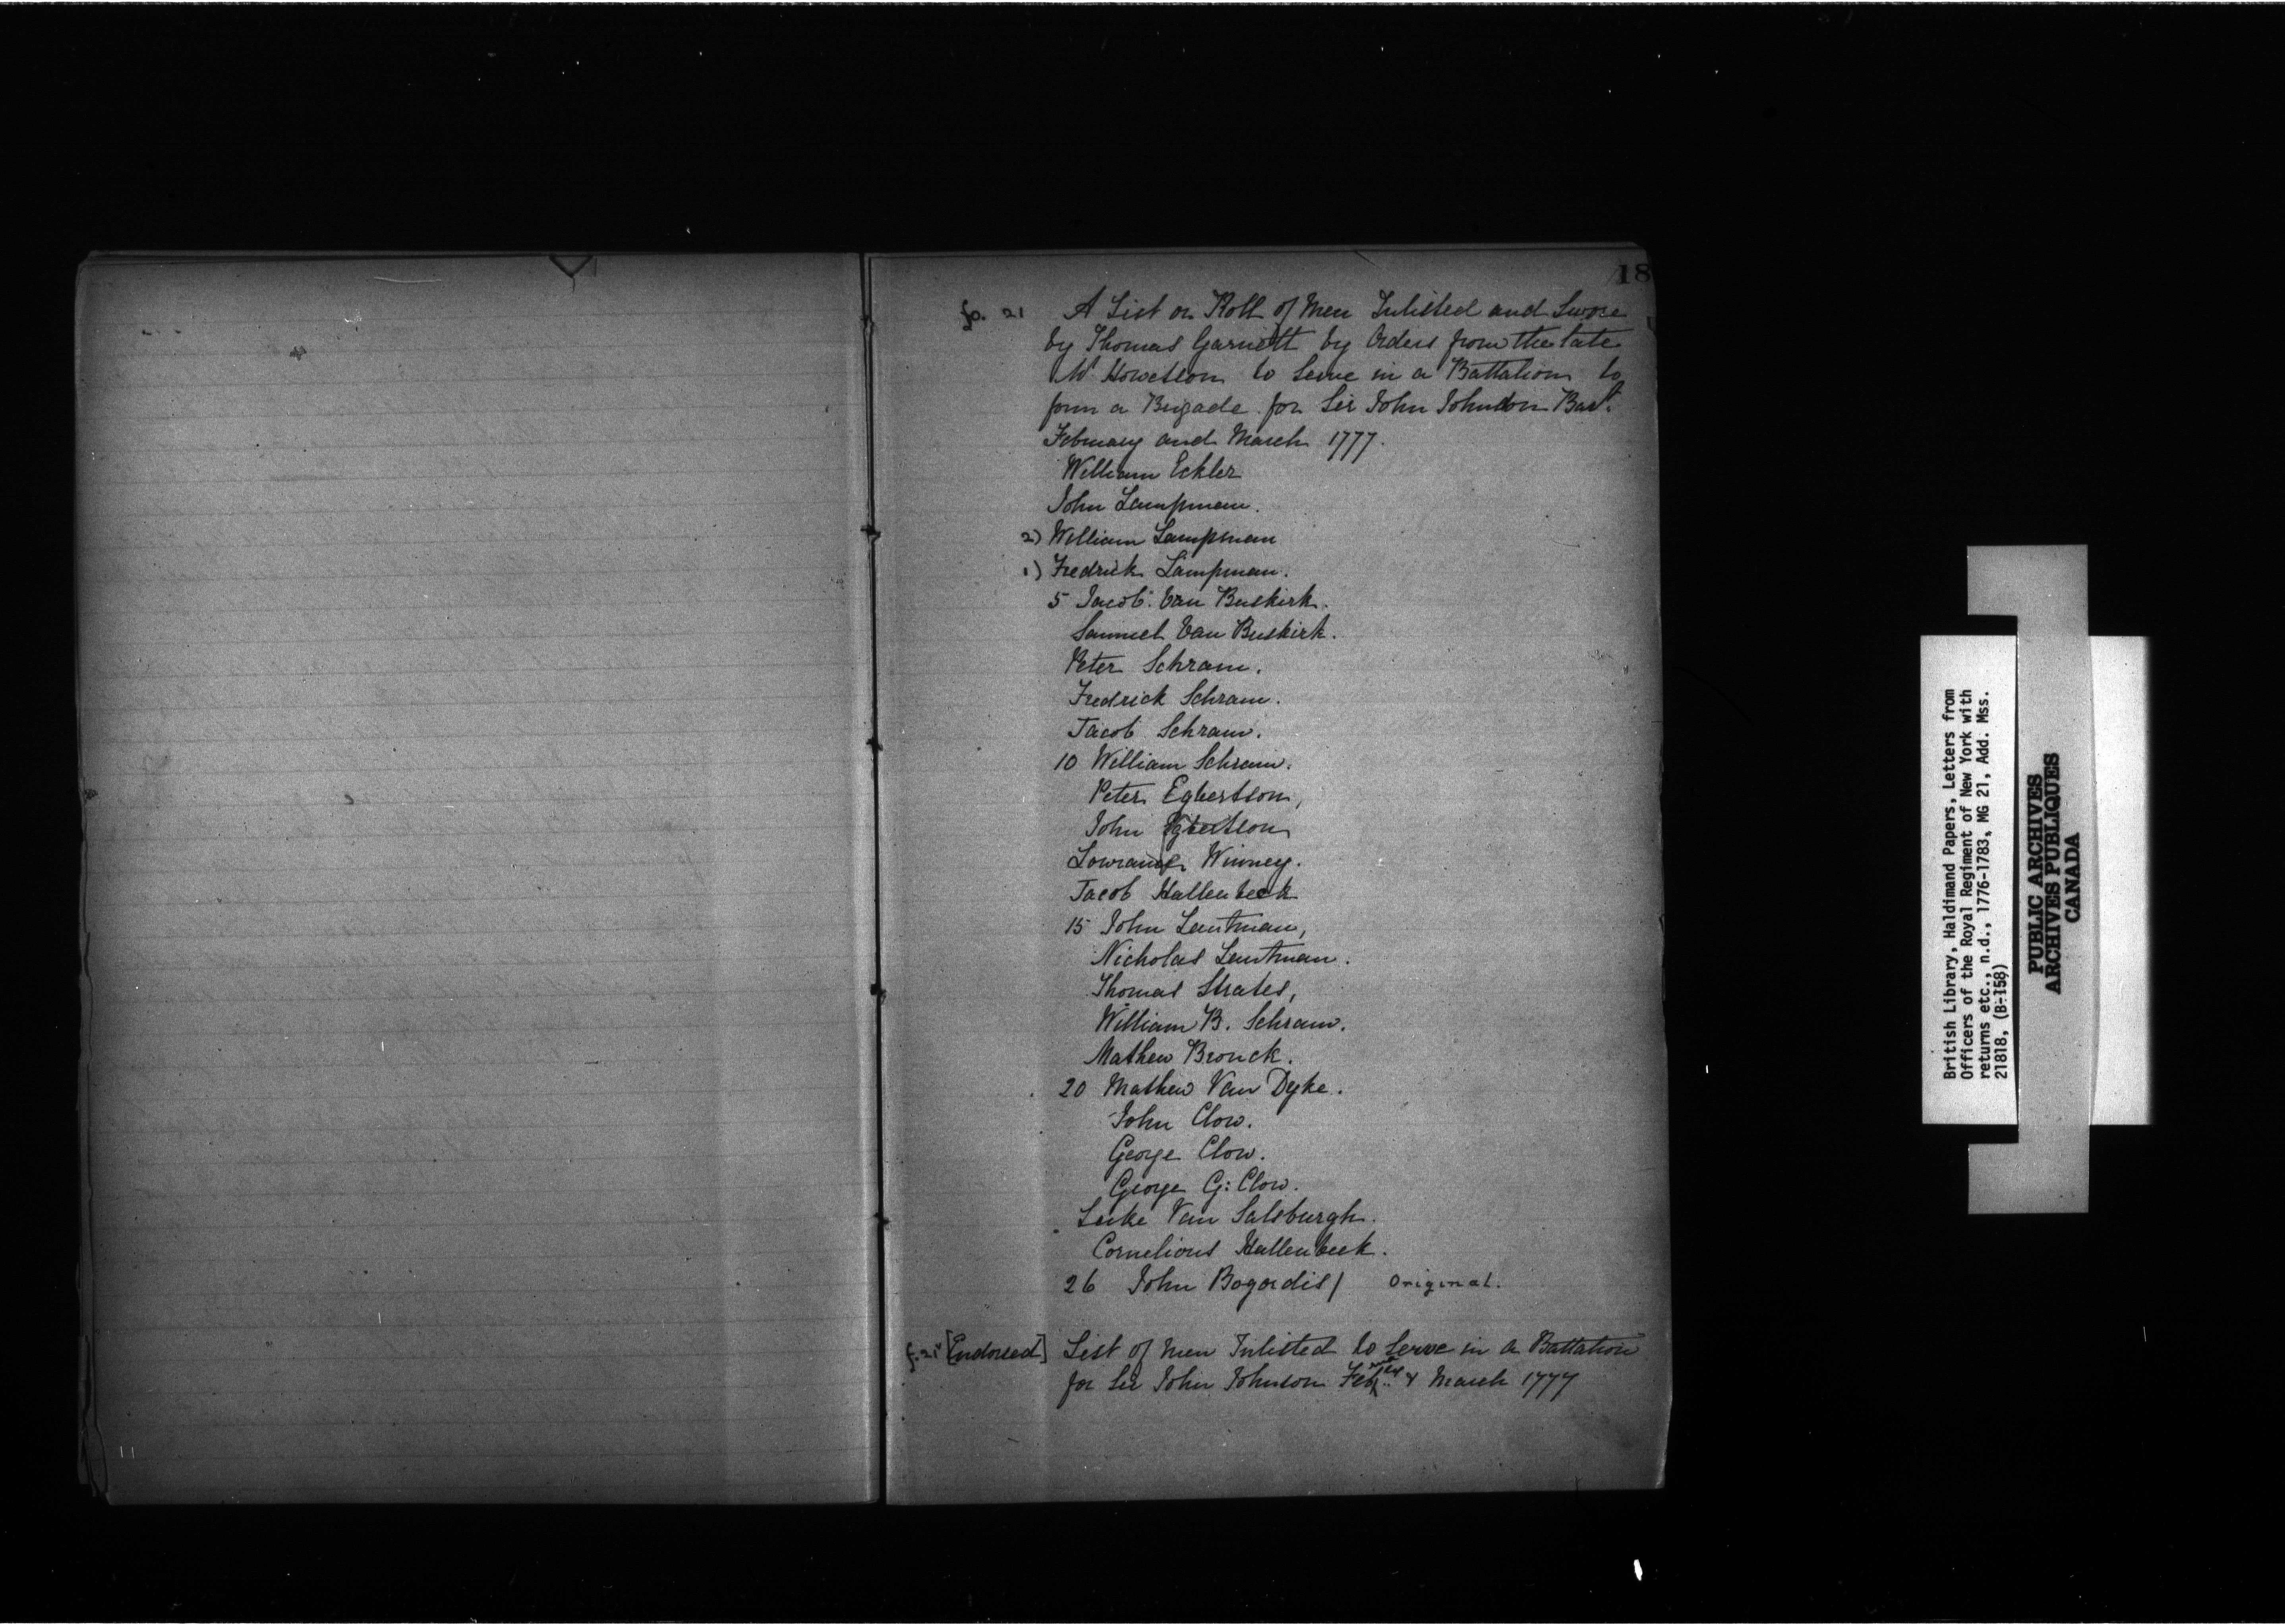 18
fo. 21 A List or Roll of Men Inlisted and Swore
by Thomas Garnett by Orders from the late
Mr Howetson to Serve in a Battalion to
form a Brigade for Sir John Johnson Bart.
February and March 1777.
William Eckler
John Lampman.
2) William Lampman
1) Fredrick Lampman.
5 Jacob Van Buskirk.
Samuel Van Buskirk.
Peter Schram.
Fredrick Schram.
Jacob Schram.
10 William Schram.
Peter Egbertson,
John Egbertson
Lowrance Winney.
Jacob Hallenbeck
15 John Lentman,
Nicholas Lentman.
Thomas Strates,
William B. Schram.
Mathew Bronck.
20 Mathew Van Dyke.
John Clow.
George Clow.
George G: Clow.
Luke Van Salsburgh.
Cornelious Hallenbeck.
26 John Bogardis/ Original.
f. 21v [Endorsed] List of men Inlisted to Serve in a Battalion
for Sir John Johnson Feb & March 1777
British Library, Haldimand Papers, Letters from
Officers of the Royal Regiment of New York with
returns etc., n.d., 1776-1783, MG 21, Add. Mss.
21818, (B-158)
PUBLIC ARCHIVES
ARCHIVES PUBLIQUES
CANADA